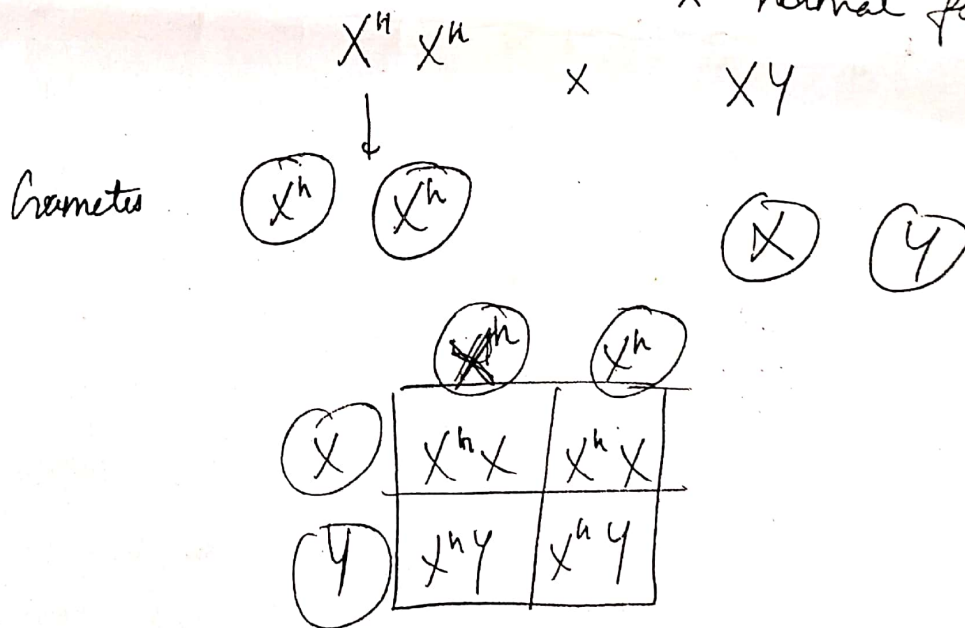 x normal
Xᴴ Xʰ x XY
Gametes Xʰ Xʰ X Y
Xʰ Xʰ
X XʰX XʰX
Y XʰY XʰY